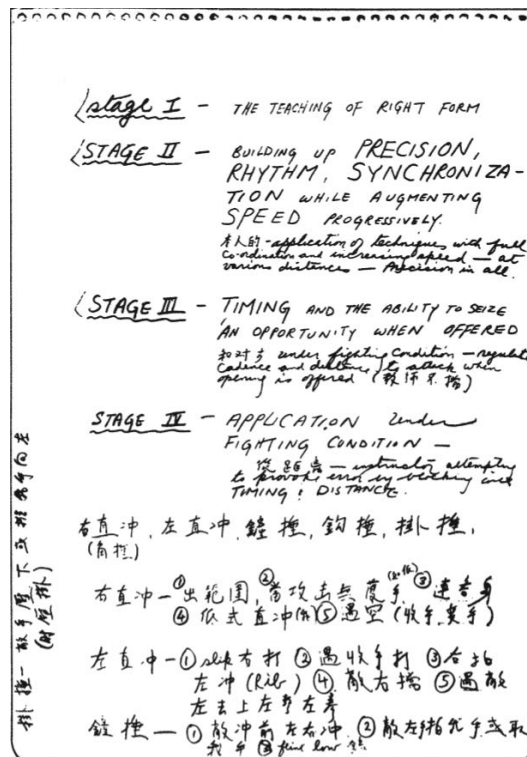 stage I - THE TEACHING OF RIGHT FORM
STAGE II - BUILDING UP PRECISION,
RHYTHM, SYNCHRONIZA-
TION WHILE AUGMENTING
SPEED PROGRESSIVELY.
本人的 - application of techniques with full
co-ordination and increasing speed — at
various distances — Precision in all.
STAGE III - TIMING AND THE ABILITY TO SEIZE
AN OPPORTUNITY WHEN OFFERED
和对方 under fighting condition — regulate
cadence and distance, to attack when
opening is offered (教师不擋)
STAGE IV - APPLICATION under
FIGHTING CONDITION —
instructor attempting
to provoke error by blocking and
TIMING & DISTANCE.
右直冲, 左直冲, 鎚搥, 鈎搥, 掛搥,
右直冲 — ① 出範圍, ② 當攻击 ③ 連
④ 低式直冲 ⑤ 遇空 (收手, 変手)
左直冲 — ① slip 右打 ② 遇收手打 ③ 右拍
左冲 (Rib) ④ 敵右擋 ⑤ 遇敵
左去上左
鎚搥 — ① 敵冲前左右冲 ② 敵左手拍
③ fine low
掛搥 — 敵手壓下或